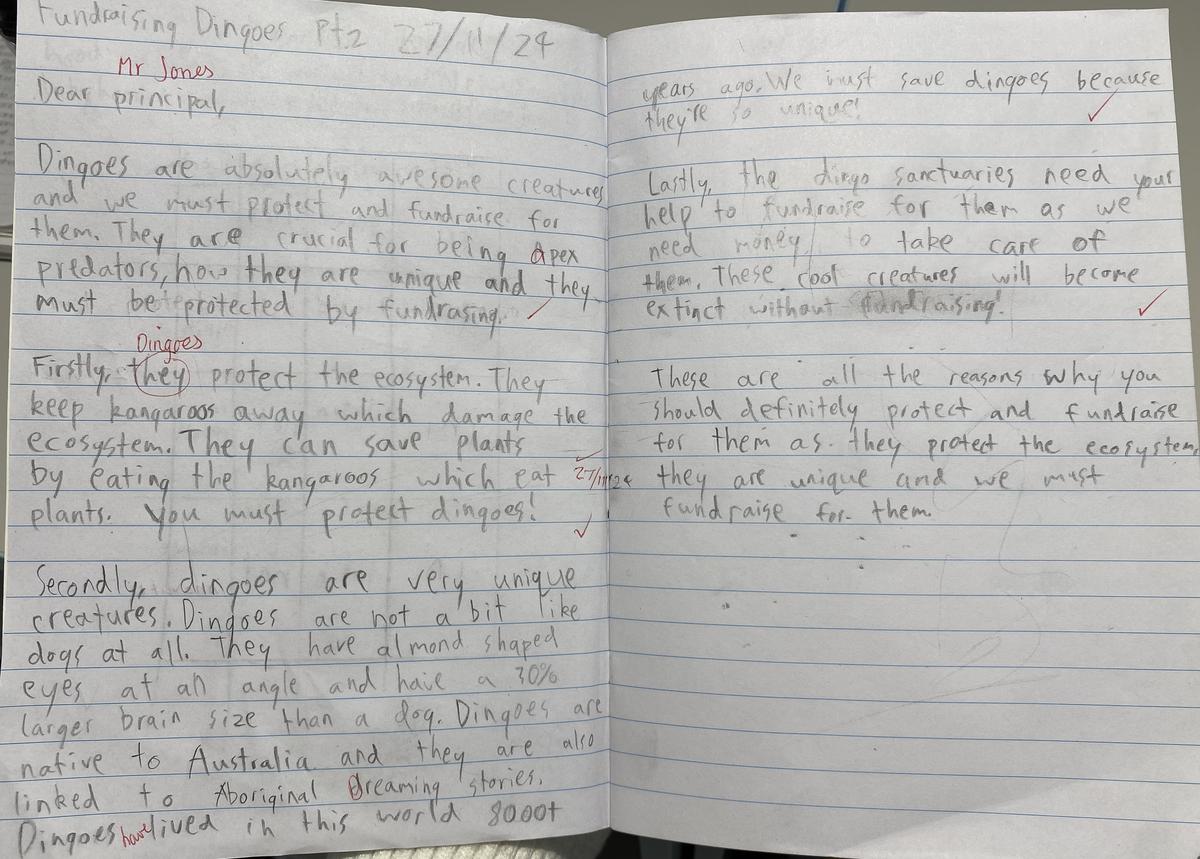 Fundraising Dingoes Pt2 27/11/24
Mr Jones
Dear principal,
Dingoes are absolutely awesome creatures
and we must protect and fundraise for
them. They are crucial for being Apex
predators, how they are unique and they
must be protected by fundrasing.
Dingoes
Firstly, they protect the ecosystem. They
keep kangaroos away which damage the
ecosystem. They can save plants
by eating the kangaroos which eat
plants. You must protect dingoes!
Secondly, dingoes are very unique
creatures. Dingoes are not a bit like
dogs at all. They have almond shaped
eyes at an angle and have a 30%
larger brain size than a dog. Dingoes are
native to Australia and they are also
linked to Aboriginal Dreaming stories.
Dingoes have lived in this world 8000+
years ago. We must save dingoes because
they're so unique!
Lastly, the dingo sanctuaries need your
help to fundraise for them as we
need money to take care of
them. These cool creatures will become
extinct without fundraising!
27/11/24
These are all the reasons why you
should definitely protect and fundraise
for them as they protect the ecosystem,
they are unique and we must
fundraise for them.